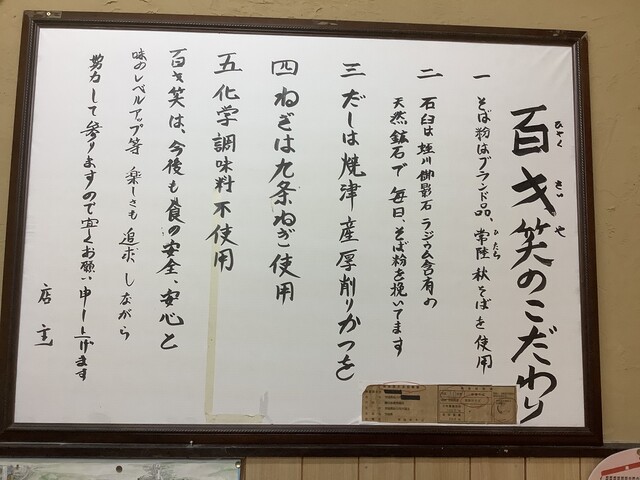 百才笑のこだわり
ひゃく
さい
や
一 そば粉はブランド品、常陸秋そばを使用
ひたち
二 石臼は蛭川御影石ラジウム含有の
天然鉱石で毎日、そば粉を挽いてます
三 だしは焼津産厚削りかつを
四 ねぎは九条ねぎ使用
五 化学調味料不使用
百才笑は、今後も食の安全、安心と
味のレベルアップ等 楽しさも 追求しながら
努力して参りますので宜くお願い申し上げます
店主